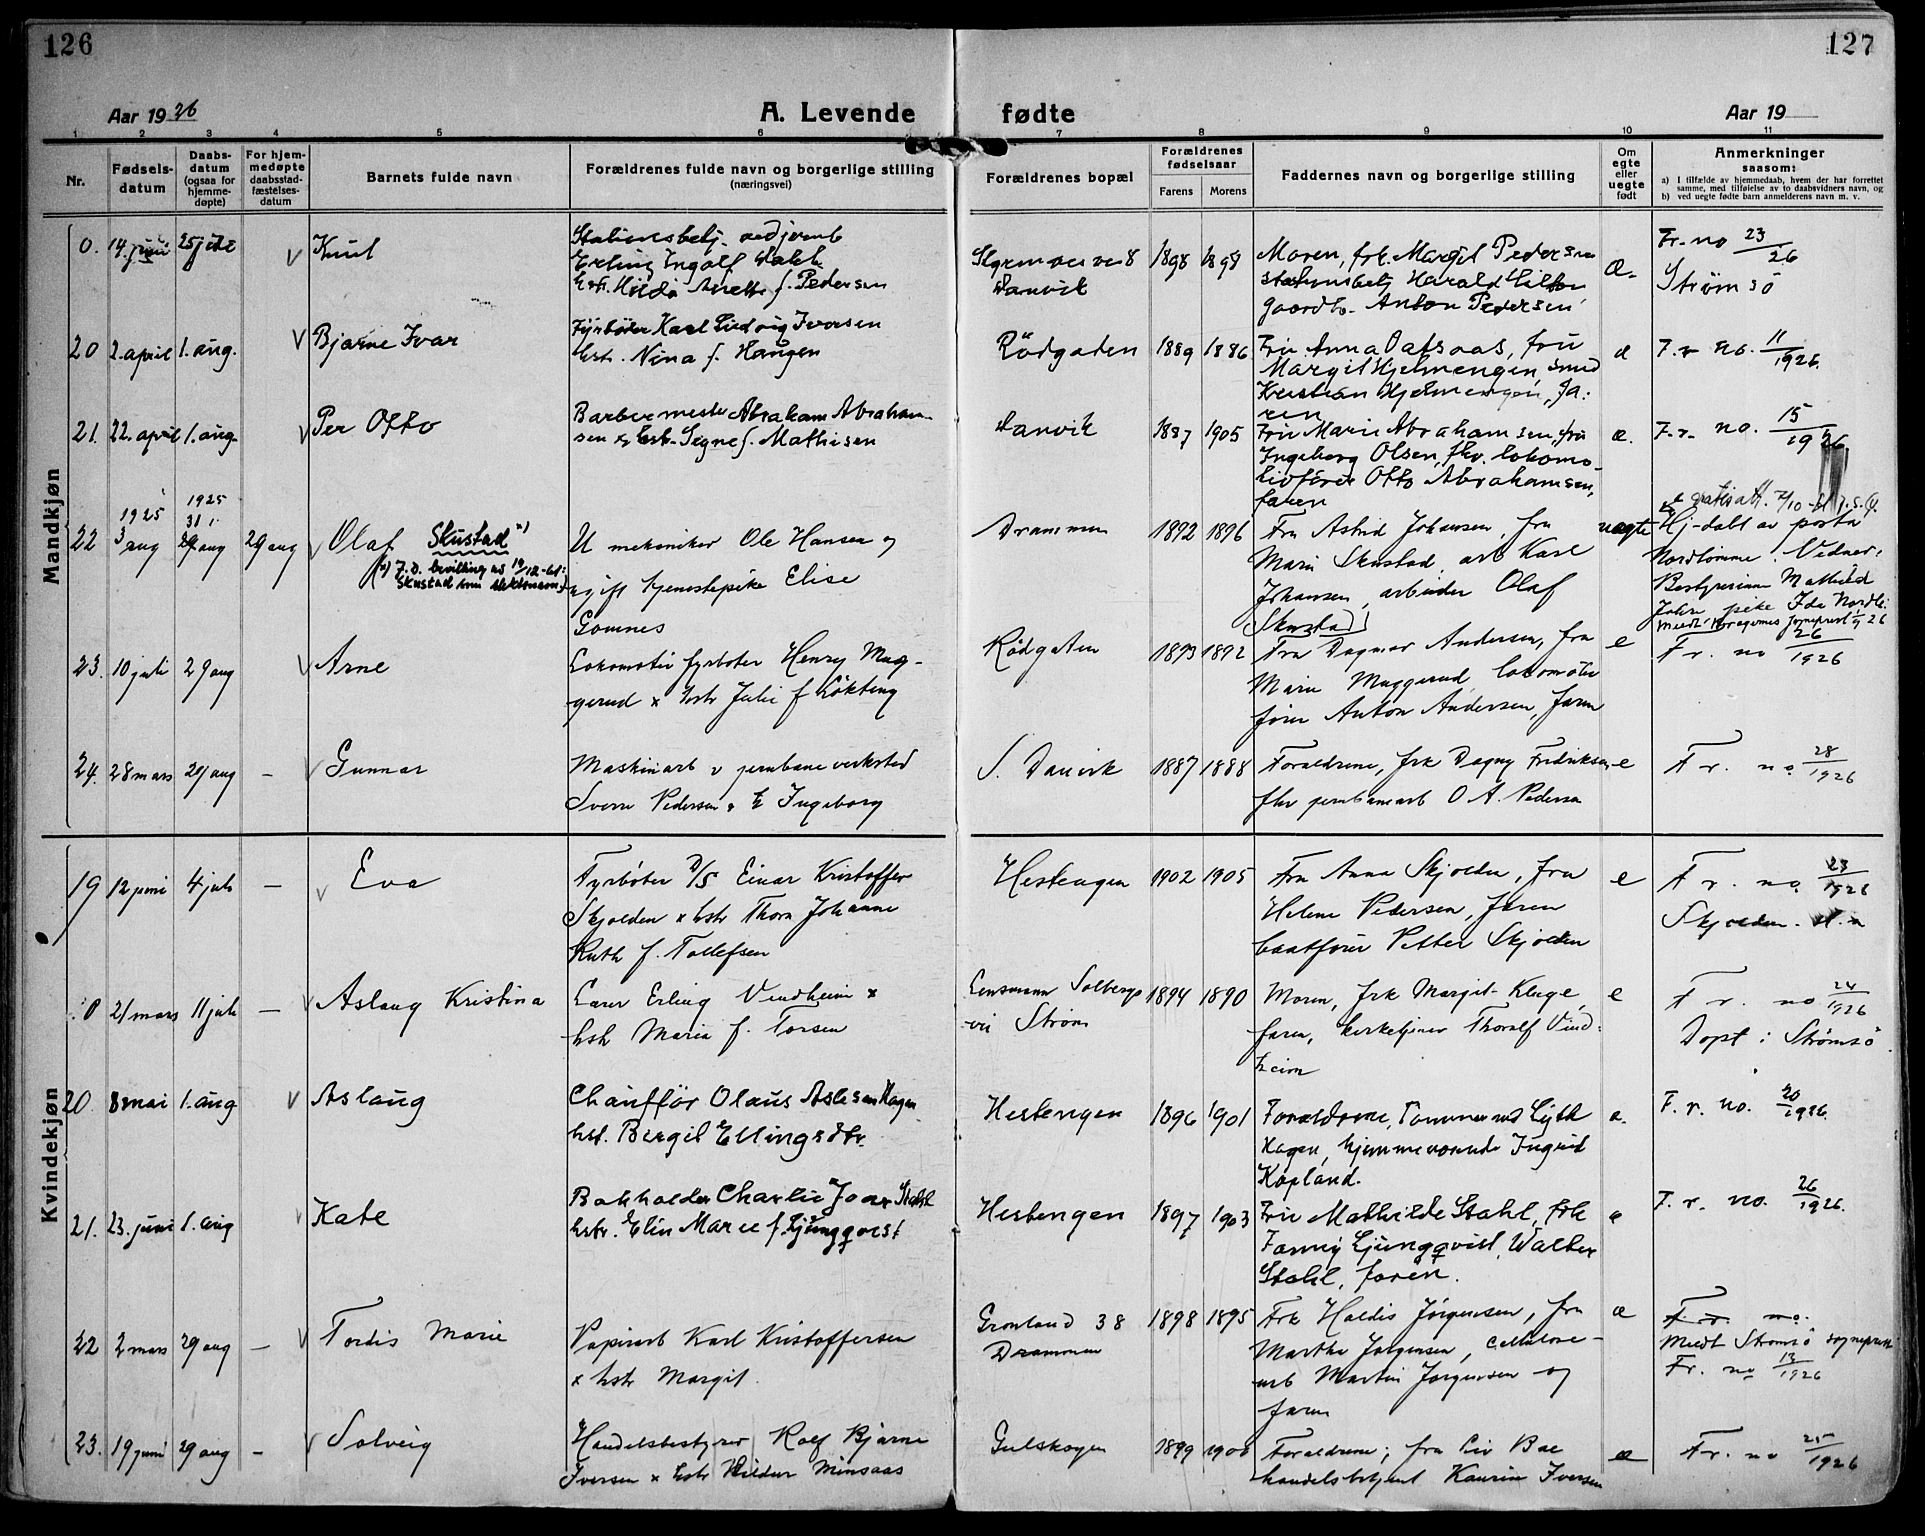 126
127
Aar 1926
A. Levende
fødte
Aar 19
1 2 3 4 5 6 7 8 9 10 11
Nr.
Fødselsdatum
Daabsdatum (ogsaa for hjemmedøpte)
For hjemmedøpte daabsstadfæstelsesdatum
Barnets fulde navn
Forældrenes fulde navn og borgerlige stilling
(næringsvei)
Forældrenes bopæl
Forældrenes fødselsaar
Farens Morens
Faddernes navn og borgerlige stilling
Om egte eller uegte født
Anmerkninger
saasom:
a) I tilfælde av hjemmedaab, hvem der har forrettet
samme, med tilføielse av to daabsvidners navn, og
b) ved uegte fødte barn anmelderens navn m. v.
Mandkjøn
0. 14. juni 25 juli Knut
Stationsbetj. ved jernb
Erling Ingolf
Hilda f. Pedersen
Danvik
1898 1898
Moren, frk. Margit Pedersen
stationsbetj Harald
gaardb. Anton Pedersen
Fr. no 23/26
Strømsö
20 2. april 1. aug. Bjarne Ivar
Fyrböter Karl Ludvig Iversen
hstr. Nina f. Haugen
Rödgaten
1889 1886
Fru Anna, fru
Margit Hjelmengen smed
Kristian Hjelmengen, Fa-
ren
F. r no. 11/1926.
21. 22. april 1. aug. Per Otto
Barbermester Abraham Abraham-
sen og hstr. Signe f. Mathisen
Danvik
1887 1905
Fru Marie Abrahamsen, fru
Ingeborg Olsen, fhv. lokomo-
tivförer Otto Abrahamsen,
faren
æ.
F. r. no. 15/1926.
22 1925 3 aug 1925 31 29 aug 29 aug Olaf Skustad x)
x) J.D. bevilling av 19/12-61:
Skustad som slektsnavn
U mekaniker Ole Hansen og
ugift tjenestepike Elise
Gomnes
Drammen
1892 1896
Fru Astrid Johansen, fru
Marie Skustad, arb Karl
Johansen, arbeider Olaf
Skustad
uegte
Hj-døbt av
Vidner:
Bestyrerinne Mathild
pike Ida
23. 10 juli 29 aug Arne
Lokomotiv fyrböter Henry Mag-
gerud x hstr Julie f
Rödgaten
1893 1892
Fru Dagmar Andersen, fru
Marie Maggerud lokomotiv
förer Anton Andersen, faren
e
Fr. no 26/1926
24. 28 mars 29 aug – Gunnar
Maskinarb v jernbaneverksted
Sverre Pedersen & h Ingeborg
S. Danvik
1887 1888
Foraldrene, frk Dagny Fredriksen
fhv jernbanearb O A. Pedersen
e
F r. no. 28/1926
Kvindekjøn
19 12 juni 4 juli – Eva
Fyrböter D/S Einar Kristoffer
Skjolden x hstr Thora Johanne
Ruth f. Tollefsen
Hestengen
1902 1905
Fru Anna Skjolden, fru
Helene Pedersen, faren
baatförer Petter Skjolden
e
F r. no. 23/1926
0 21 mars 11 juli – Aslaug Kristina
Lærer Erling Vindheim x
hstr Maria f. Torsen
Lensmann Solbergs
vei Ström
1894 1890
Moren, frk Margit Kluge
faren, kirketjener Thoralf Vind-
heim
e
F r. no 24/1926
Döpt i Strömsö
20. 8 mai 1. aug Aslaug
Chauffør Olaus Aslesen Hagen
hst. Birgit Ellingsdtr.
Hestengen
1896 1901
Foraldrene, Tömmermd
Hagen, hjemmeværende Ingrid
Kopland.
F. r. no. 20/1926.
21. 23. juni 1. aug Kate
Bokholder Charlie Stahl
hstr. Elin Marie f. Ljungqvist
Hestengen
1897 1903
Fru Mathilde Stahl, frk
Fanny Ljungqvist, Walter
Stahl, faren.
F. r. no. 26/1926.
22 2 mars 29 aug – Tordis Marie
Papirarb Karl Kristoffersen
x hstr Margit.
Grønland 38
Drammen
1898 1895
Frk Haldis Jörgensen, fru
Marthe Jörgensen, cellulose-
arb Martin Jörgensen og
faren
æ
Fr. no.
Meldt Strömsö sogneprest
Fr. no 13/1926
23. 19 juni 29 aug – Solveig
Handelsbestyrer Rolf Bjarne
Iversen x hstr Hildur Minsaas
Gulskogen
1899 1900
Foraldrene, fru Liv Boe
handelsbetjent Iversen
æ
Fr. no 25/1926